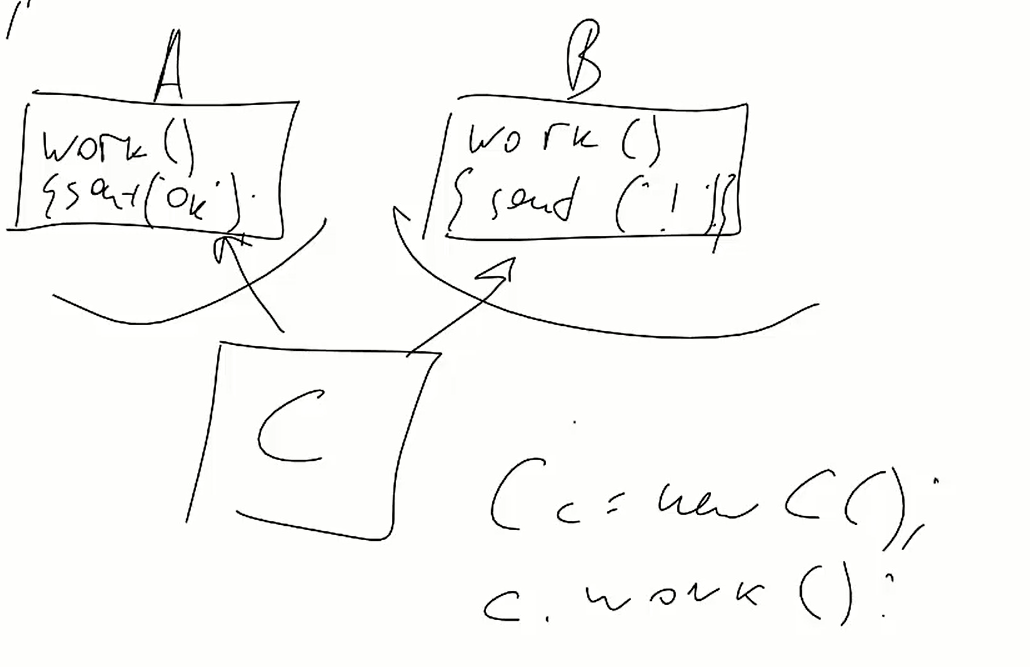 A
work()
{sout("Ok").
B
work()
{ send ("!")}
C
C c = new C();
c. work ();